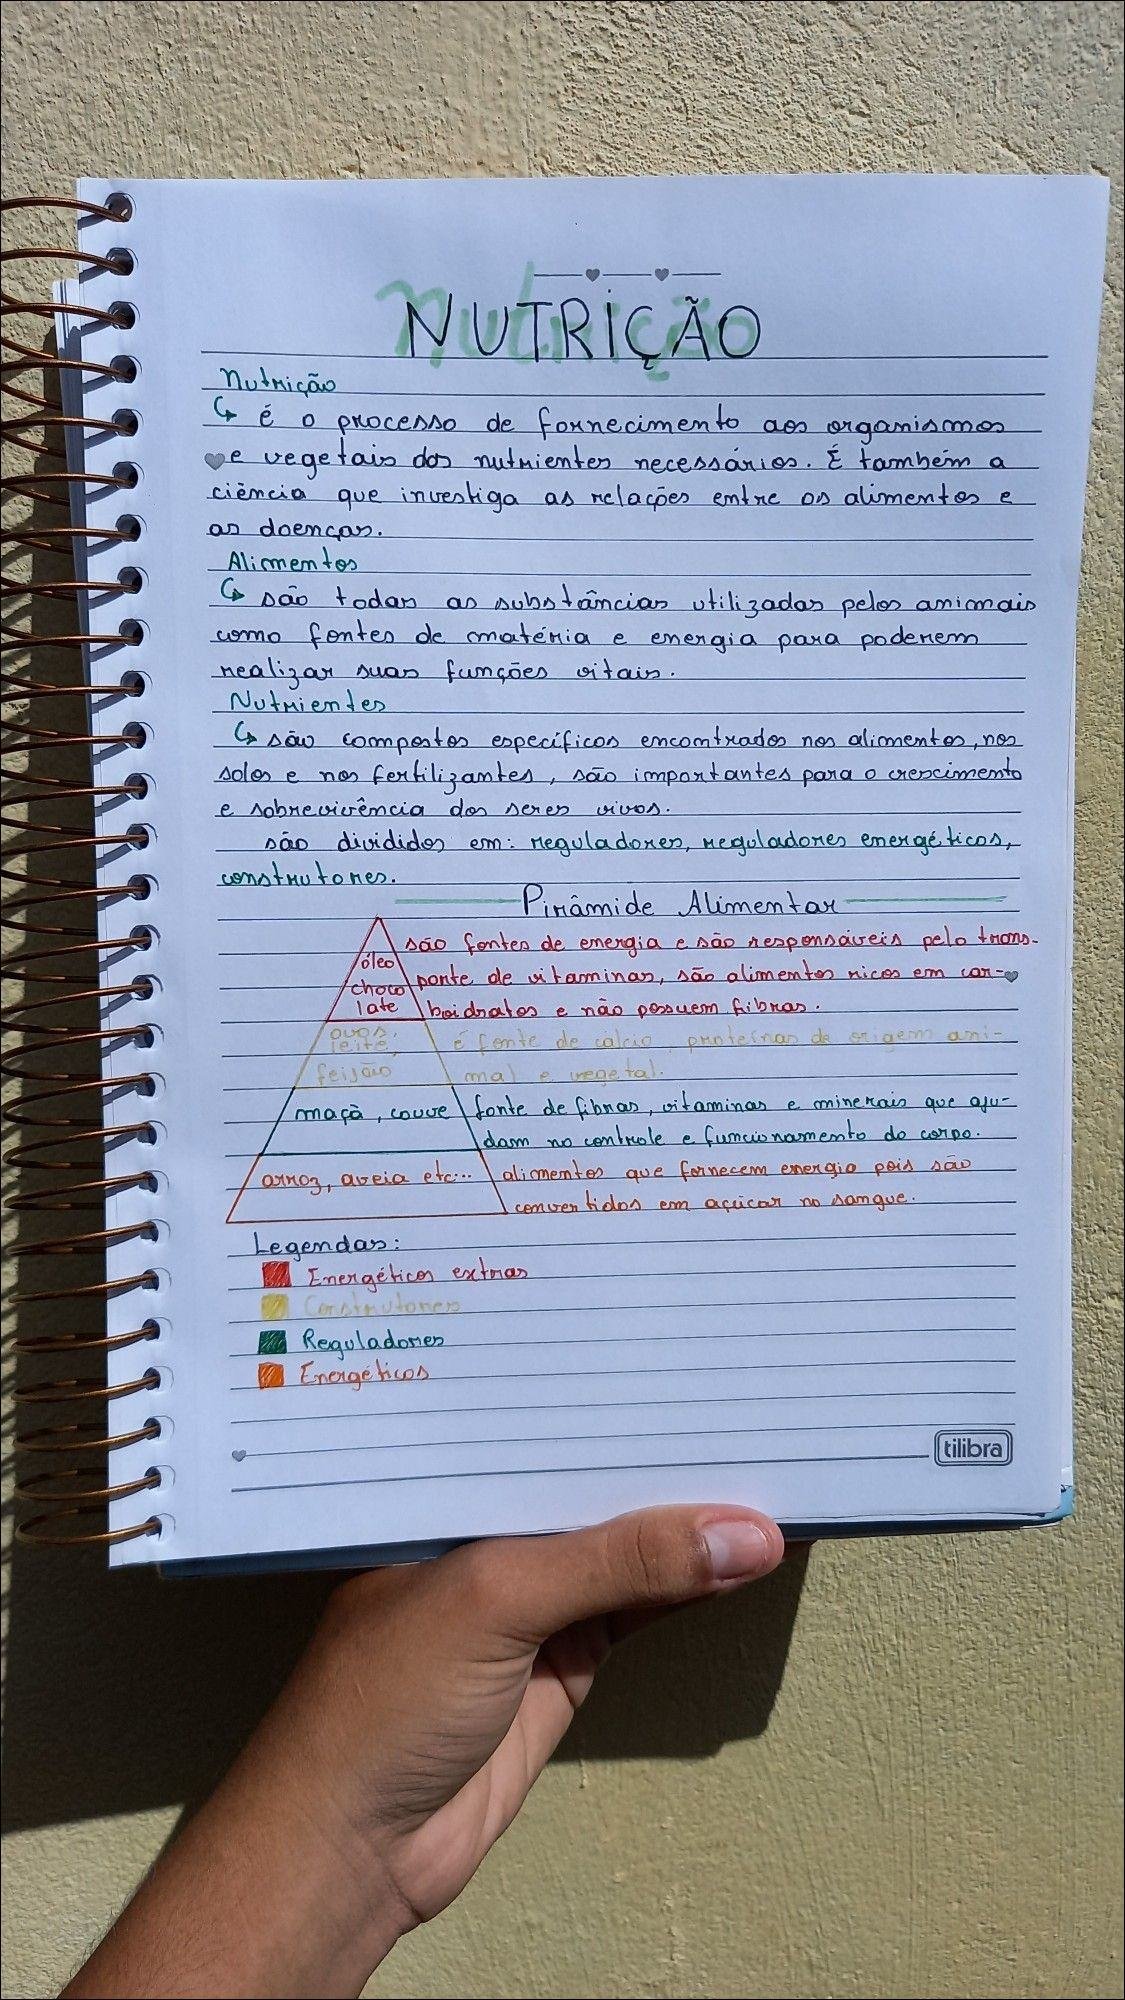 Nutrição
NUTRIÇÃO
Nutrição
↳ é o processo de fornecimento aos organismos
e vegetais dos nutrientes necessários. É também a
ciência que investiga as relações entre os alimentos e
as doenças.
Alimentos
↳ são todas as substâncias utilizadas pelos animais
como fontes de matéria e energia para poderem
realizar suas funções vitais.
Nutrientes
↳ são compostos específicos encontrados nos alimentos, nos
solos e nos fertilizantes, são importantes para o crescimento
e sobrevivência dos seres vivos.
são divididos em: reguladores, reguladores energéticos,
construtores.
Pirâmide Alimentar
óleo
choco
late
são fontes de energia e são responsáveis pelo trans-
porte de vitaminas, são alimentos ricos em car-
boidratos e não possuem fibras.
ovos,
leite,
feijão
é fonte de cálcio, proteínas de origem ani-
mal e vegetal.
maçã, couve
fonte de fibras, vitaminas e minerais que aju-
dam no controle e funcionamento do corpo.
arroz, aveia etc...
alimentos que fornecem energia pois são
convertidos em açúcar no sangue.
Legendas:
Energéticos extras
Construtores
Reguladores
Energéticos
tilibra